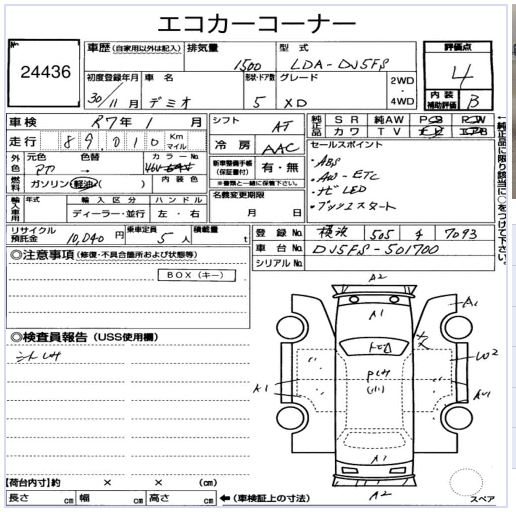 エコカーコーナー
24436
車歴 (自家用以外は記入) 排気量 1500
型式 LDA-DJ5FS
評価点 4
内装補助評価 B
初度登録年月 30/11月
車名 デミオ
形状・ドア数 5
グレード XD
2WD・4WD
車検 R7年1月
シフト AT
純正品 SR 純AW PS PW
カワ TV
走行 89,010 Km マイル
冷房 AAC
セールスポイント
・ABS
・AW・ETC
・ナビ LED
・プッシュスタート
外色 元色 色替 カラーNo.
新車整備手帳(保証書付) 有・無
※書類と一緒に保管下さい。
燃料 ガソリン 軽油 ( ) 内装色
名義変更期限 月 日
輸入車用 年式 輸入区分 ハンドル
ディーラー・並行 左・右
リサイクル預託金 10,040円
乗車定員 5人
積載量 t
登録No. 横浜 505 す 7093
車台No. DJ5FS-501700
シリアルNo.
←純正品に限り該当に○をつけて下さい。
◎注意事項(修復・不具合箇所および状態等)
BOX(キー)
◎検査員報告(USS使用欄)
A2
A1
A1
W2
A1
A1
A2
スペア
【荷台内寸】約 × × (cm)
長さ cm 幅 cm 高さ cm ←(車検証上の寸法)